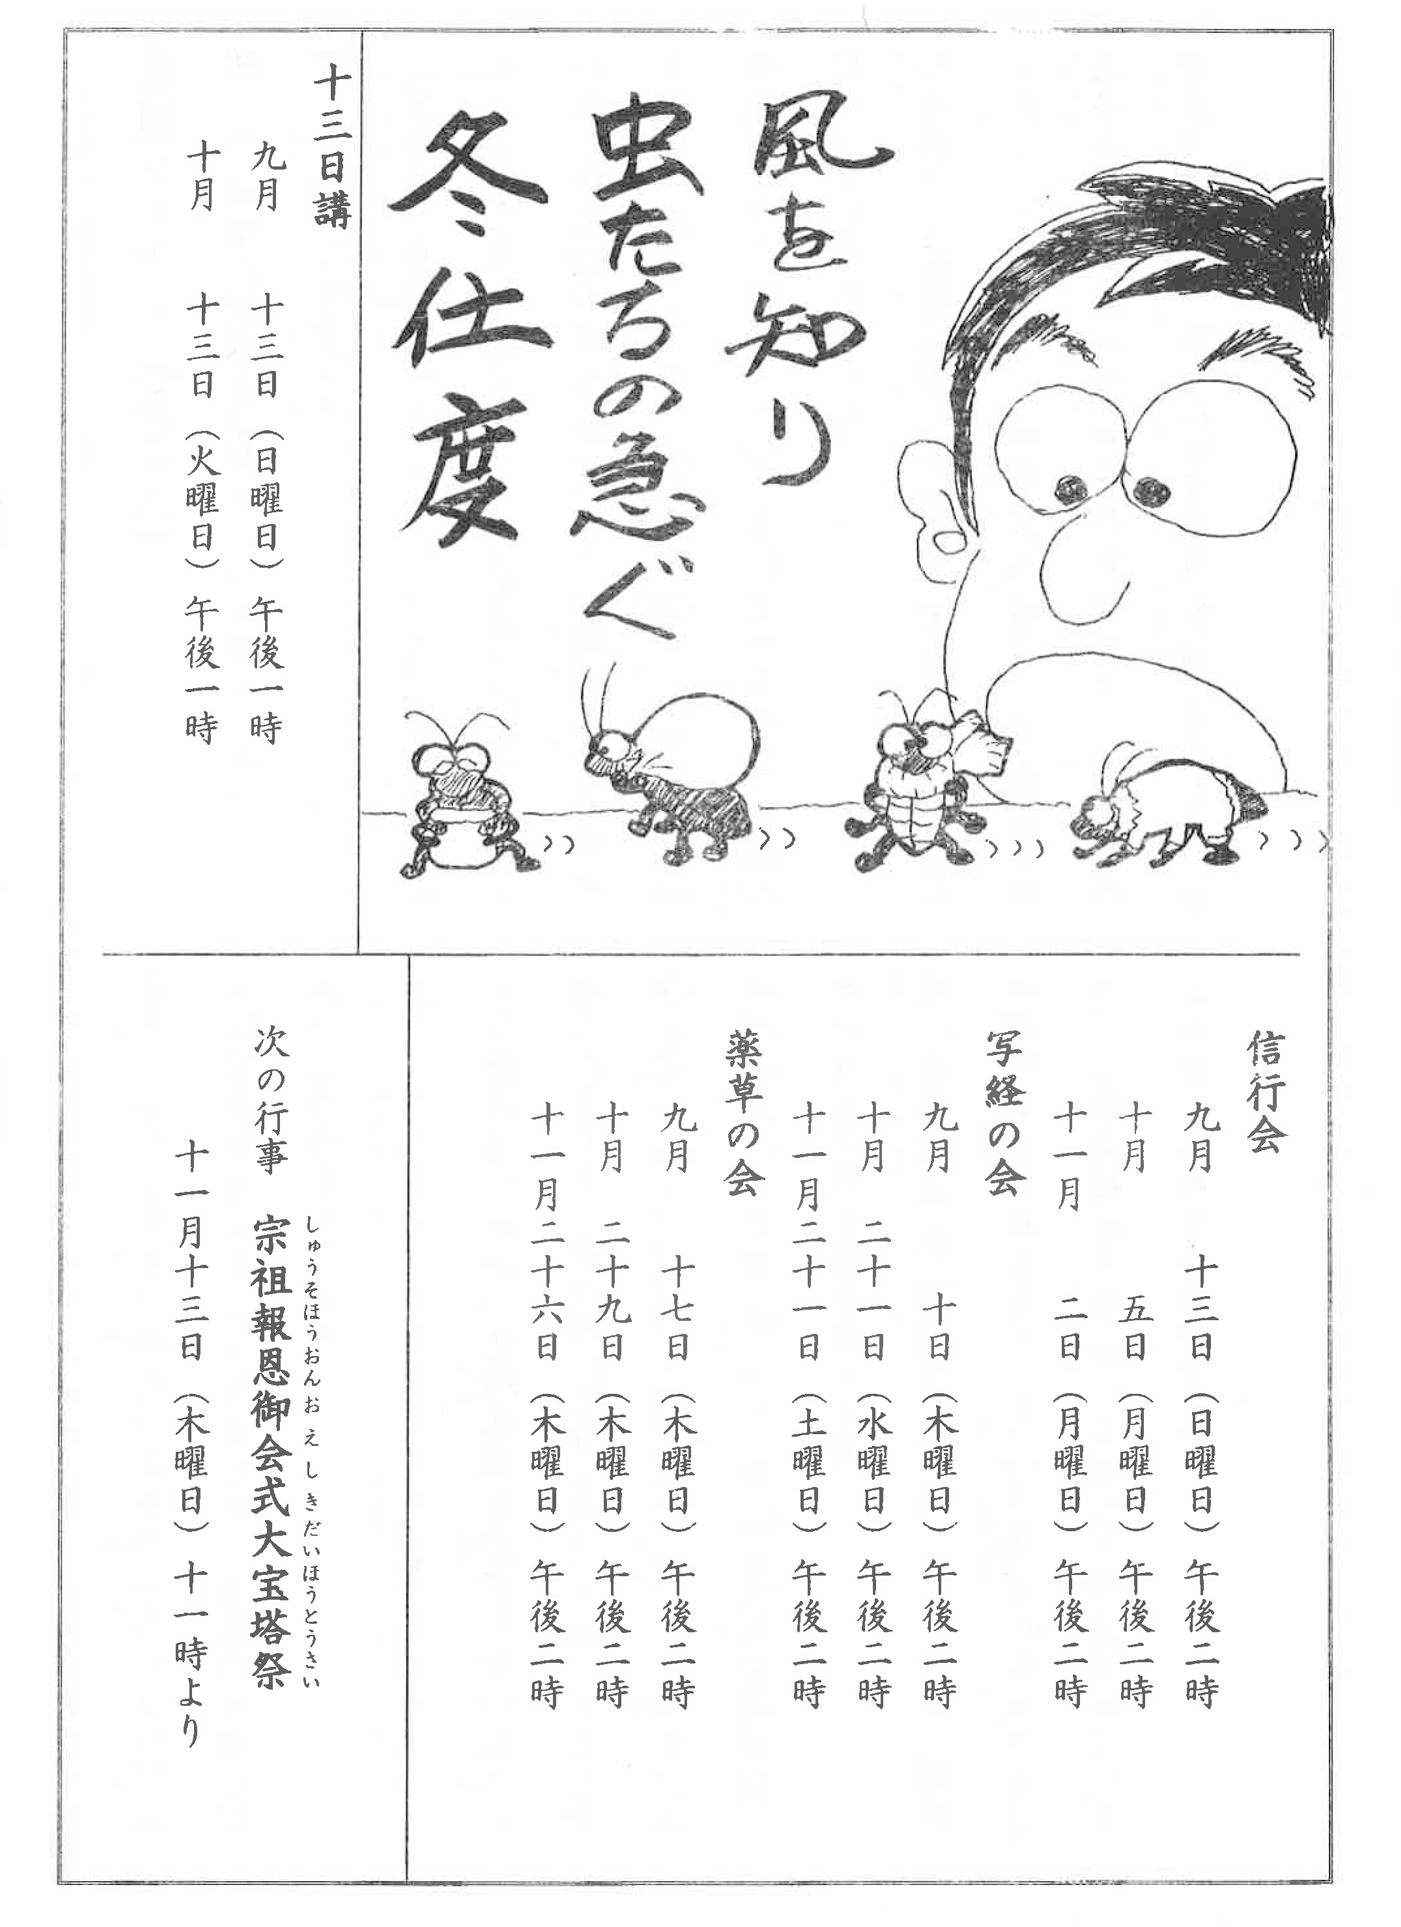 風を知り
虫たちの急ぐ
冬仕度
十三日講
九月　十三日（日曜日）午後一時
十月　十三日（火曜日）午後一時
信行会
九月　十三日（日曜日）午後二時
十月　五日（月曜日）午後二時
十一月　二日（月曜日）午後二時
写経の会
九月　十日（木曜日）午後二時
十月　二十一日（水曜日）午後二時
十一月二十一日（土曜日）午後二時
薬草の会
九月　十七日（木曜日）午後二時
十月　二十九日（木曜日）午後二時
十一月二十六日（木曜日）午後二時
しゅうそほうおんおえしきだいほうとうさい
次の行事　宗祖報恩御会式大宝塔祭
十一月十三日（木曜日）十一時より